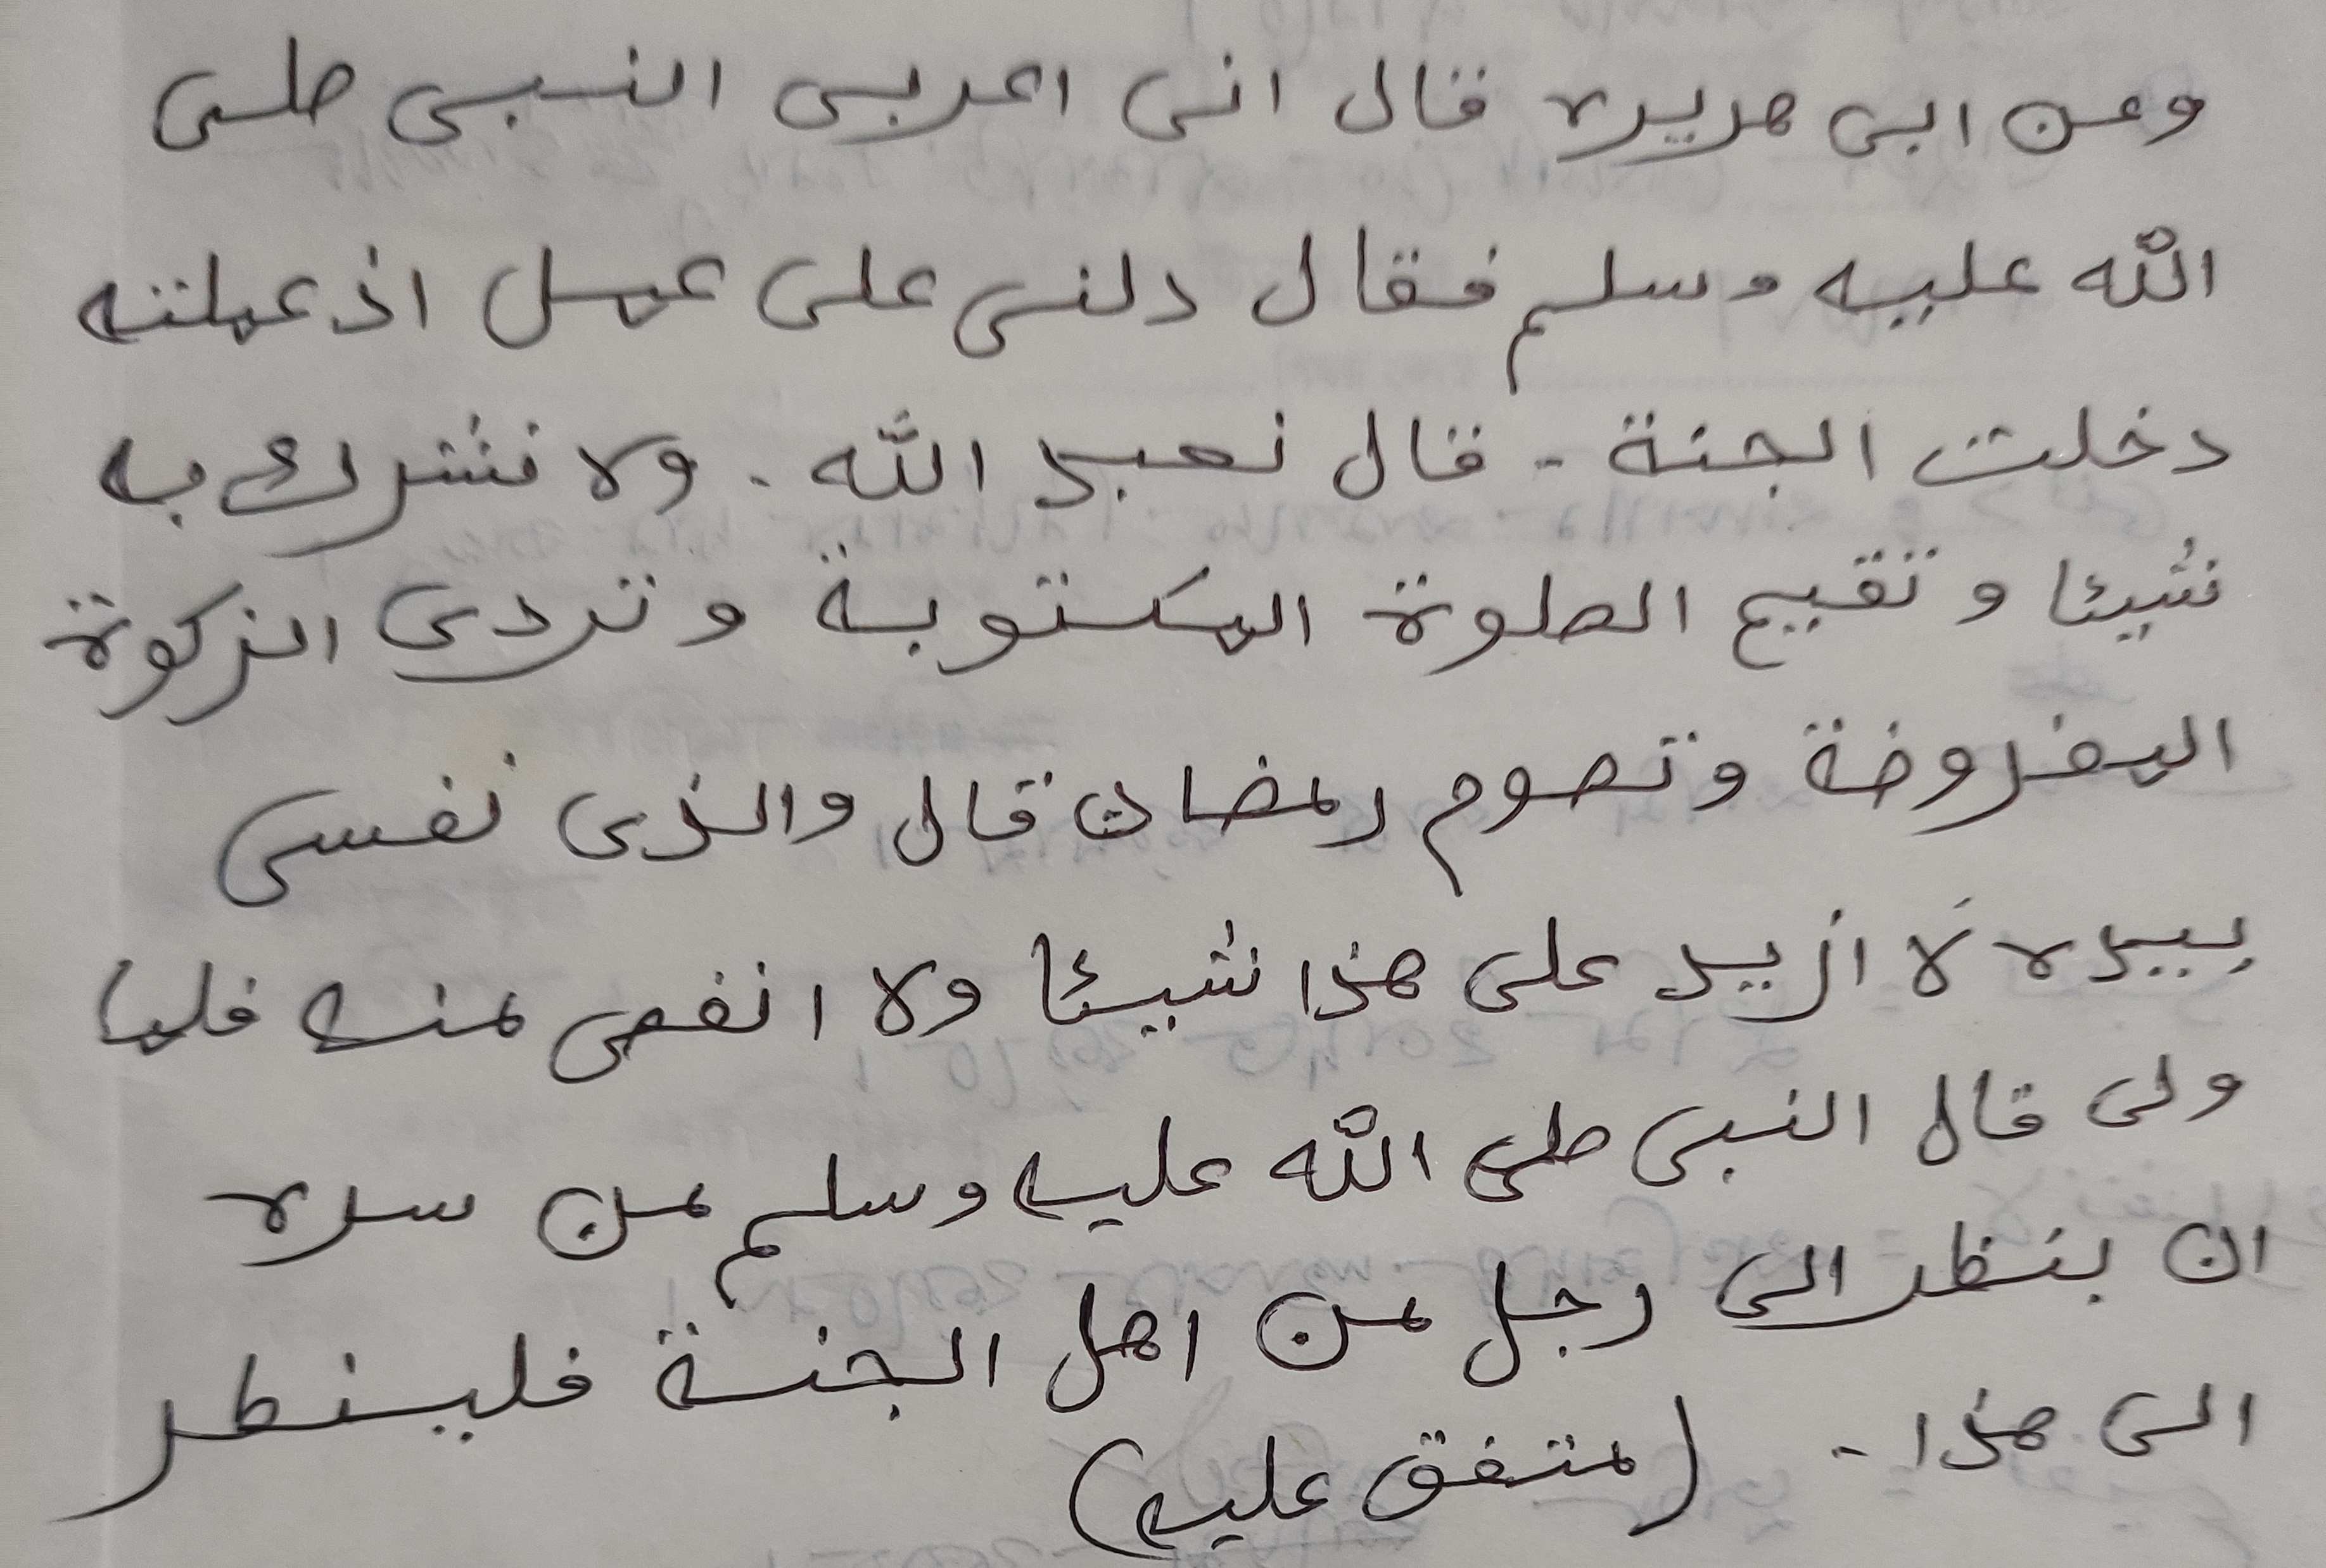 وعن ابى هريره قال انى اعربى النبى صلى
الله عليه وسلم فقال دلنى على عمل اذ عملته
دخلت الجنة - قال نعبد الله . ولا نشرك به
شيئا و تقيم الصلوة المكتوبة و تردى الزكوة
المفروضة وتصوم رمضان قال والذى نفسى
بيده لا ازيد على هذا شيئا ولا انقص منه فلما
ولى قال النبى صلى الله عليه وسلم من سره
ان ينظر الى رجل من اهل الجنة فلينطر
الى هذا - (متفق عليه)